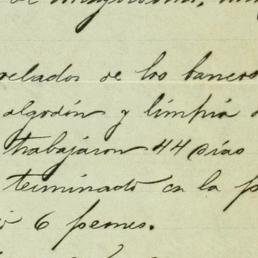 de
relados de los bancos
algodón y limpia
trabajaron 44 días
terminado en la
6 peones.